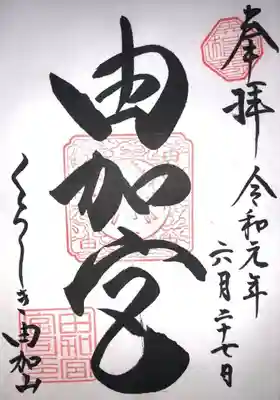 奉拝 令和元年
六月二十七日
由加宮
くらしき由加山